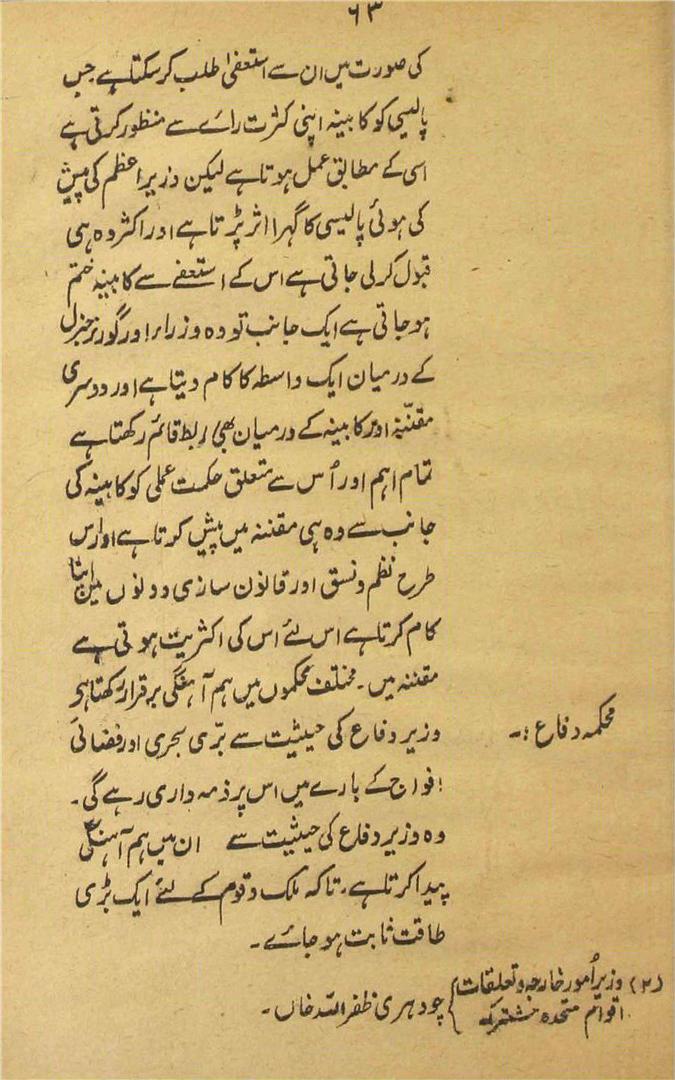 ۶۳
کی صورت میں ان سے استعفیٰ طلب کرسکتا ہے جس
پالیسی کو کابینہ اپنی کثرت رائے سے منظور کرتی ہے
اسی کے مطابق عمل ہوتا ہے لیکن وزیر اعظم کی پیش
کی ہوئی پالیسی کا گہرا اثر پڑتا ہے اور اکثر وہ ہی
قبول کرلی جاتی ہے اس کے استعفے سے کابینہ ختم
ہوجاتی ہے ایک جانب تو وہ وزراء اور گورنر جنرل
کے درمیان ایک واسطہ کا کام دیتا ہے اور دوسری
مقننہ اور کابینہ کے درمیان بھی ربط قائم رکھتا ہے
تمام اہم اور اُس سے متعلق حکمت عملی کو کابینہ کی
جانب سے وہ ہی مقننہ میں پیش کرتا ہے اور اس
طرح نظم و نسق اور قانون سازی دونوں میں اپنا
کام کرتا ہے اس لئے اس کی اکثریت ہوتی ہے
مقننہ میں۔ مختلف محکموں میں ہم آہنگی برقرار رکھتا ہے
محکمہ دفاع :۔ وزیر دفاع کی حیثیت سے برّی بحری اور فضائی
افواج کے بارے میں اس پر ذمہ داری رہے گی۔
وہ وزیر دفاع کی حیثیت سے ان میں ہم آہنگی
پیدا کرتا ہے۔ تاکہ ملک و قوم کے لئے ایک بڑی
طاقت ثابت ہو جائے۔
(۲) وزیر اُمور خارجہ و تعلقات
اقوام متحدہ مشترکہ } چودہری ظفر اللہ خاں۔